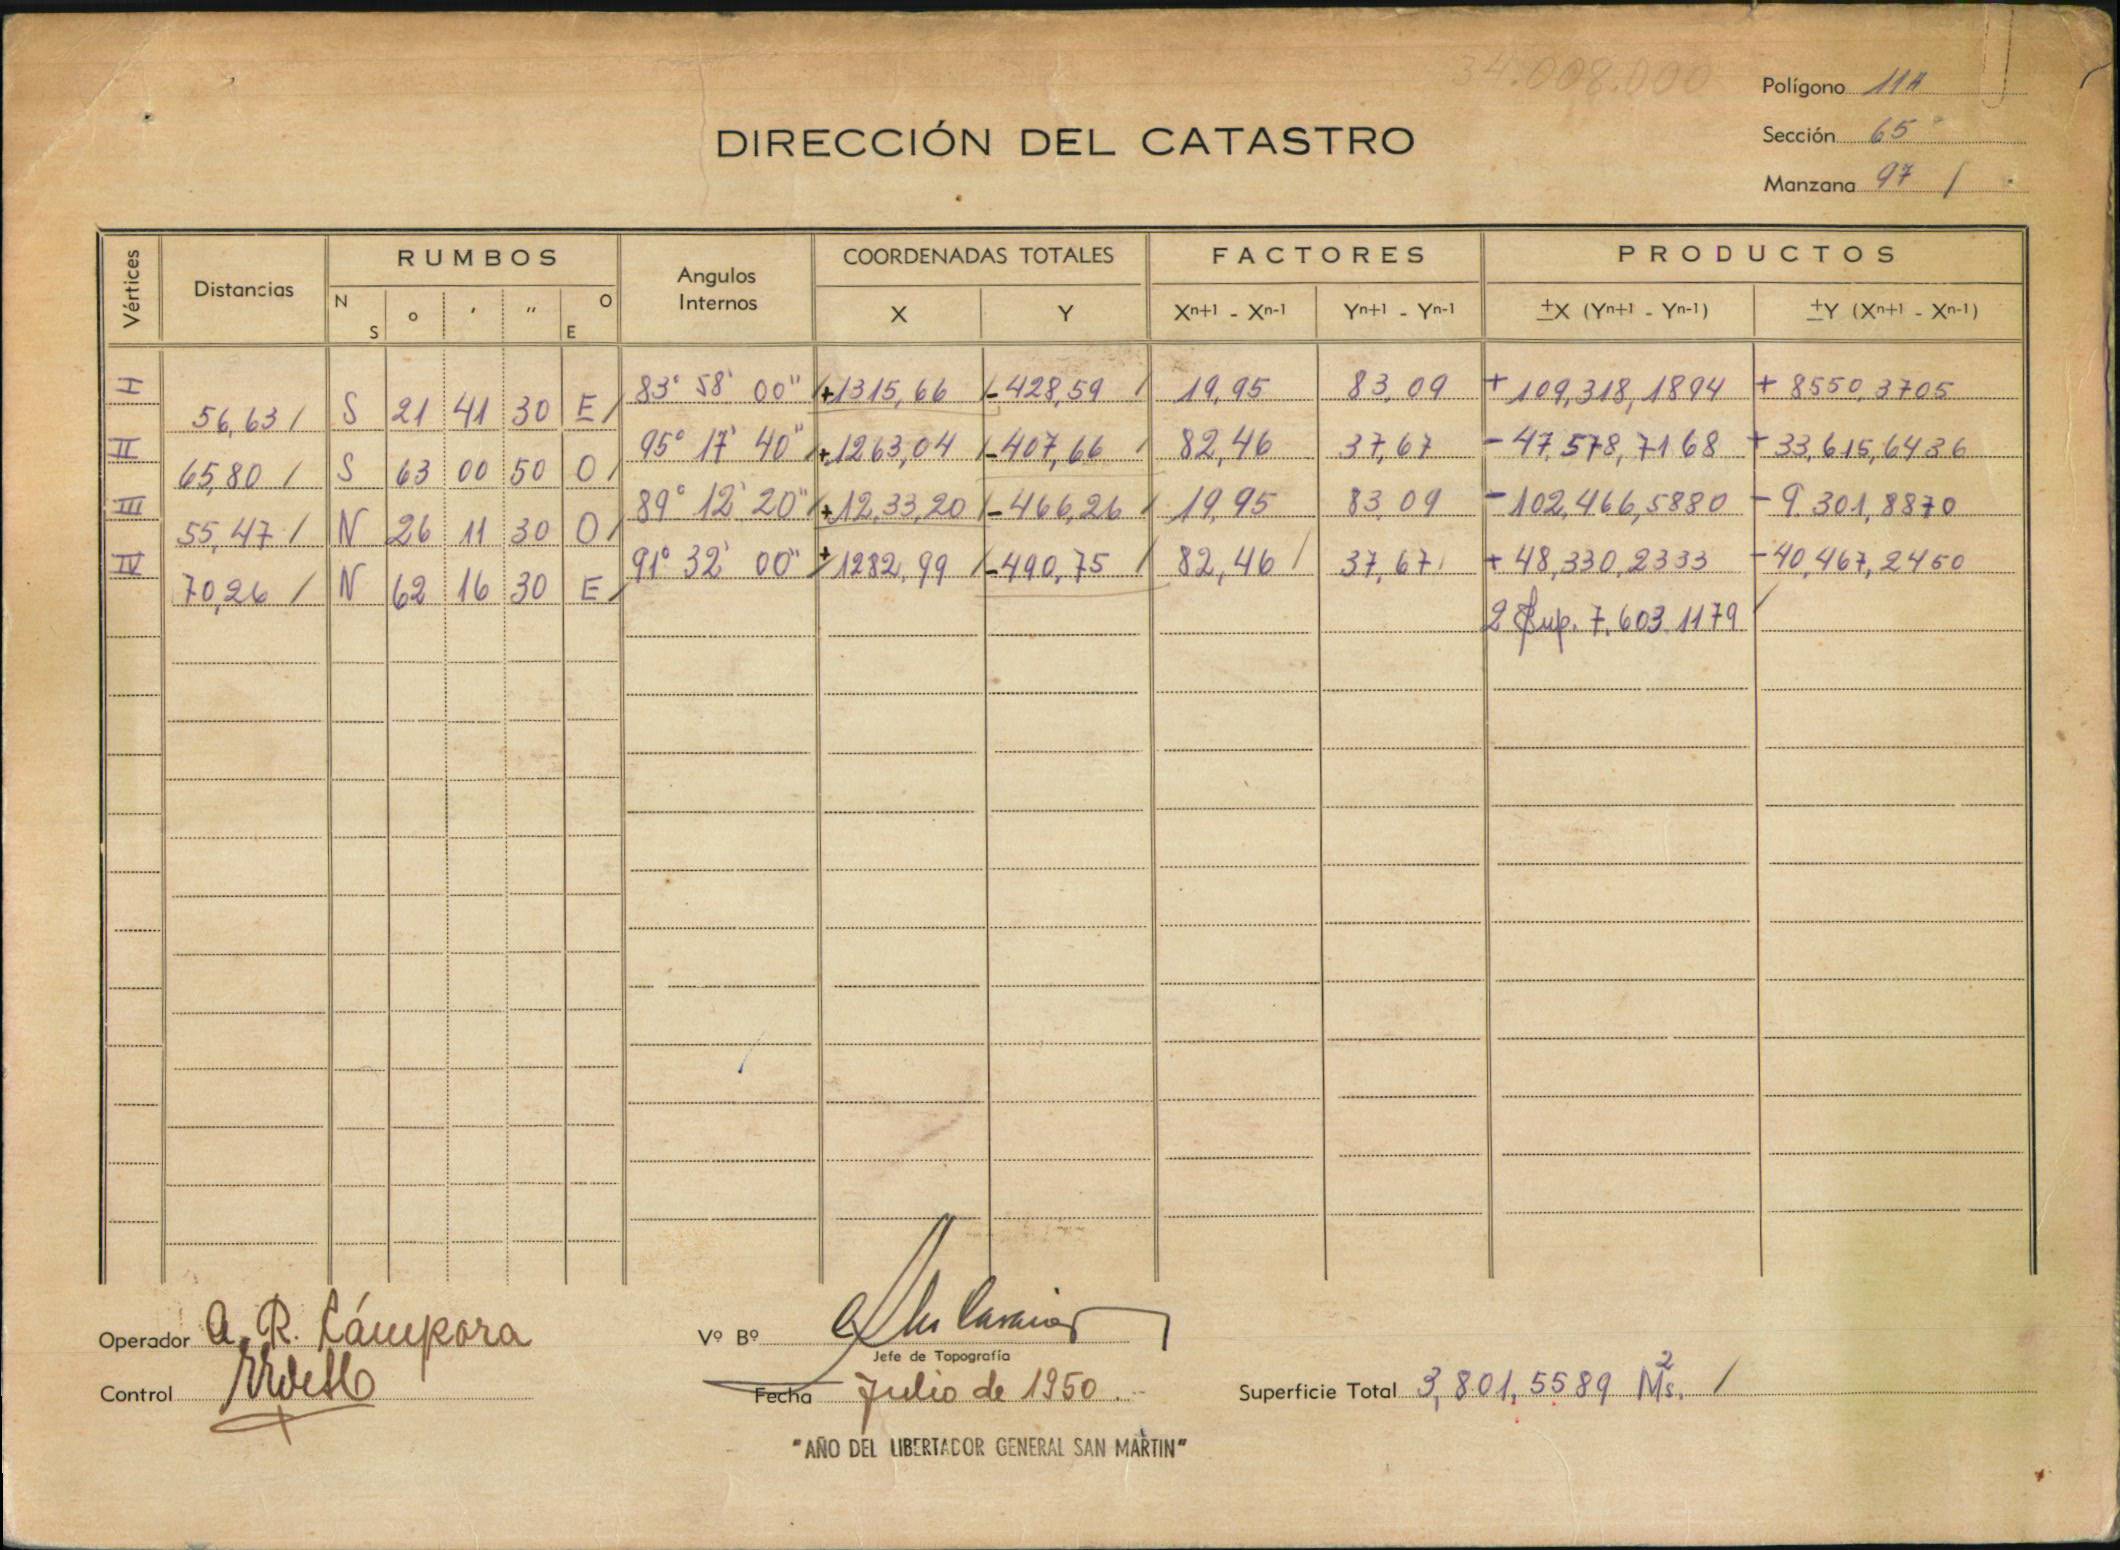 34.008.000
Polígono 114
DIRECCIÓN DEL CATASTRO
Sección 65ª
Manzana 97 /
Vértices Distancias RUMBOS Angulos Internos COORDENADAS TOTALES FACTORES PRODUCTOS
N S o ' " O E X Y Xn+1 - Xn-1 Yn+1 - Yn-1 ±X (Yn+1 - Yn-1) ±Y (Xn+1 - Xn-1)
I 83° 58' 00" / +1315,66 / -428,59 / 19,95 83,09 + 109,318,1894 + 8550,3705
56,63 / S 21 41 30 E /
II 95° 17' 40" / +1263,04 / -407,66 / 82,46 37,67 - 47,578,7168 + 33,615,6436
65,80 / S 63 00 50 O /
III 89° 12' 20" / +12,33,20 / -466,26 / 19,95 83,09 - 102,466,5880 - 9.301,8870
55,47 / N 26 11 30 O /
IV 91° 32' 00" / +1282,99 / -490,75 / 82,46 / 37,67 + 48,330,2333 - 40,467,2450
70,26 / N 62 16 30 E /
2 Sup. 7.603.1179 /
Operador A. R. Cámpora
Vº Bº
Jefe de Topografía
Control
Fecha Julio de 1950.
Superficie Total 3,801,5589 Ms.2 /
"AÑO DEL LIBERTADOR GENERAL SAN MARTIN"